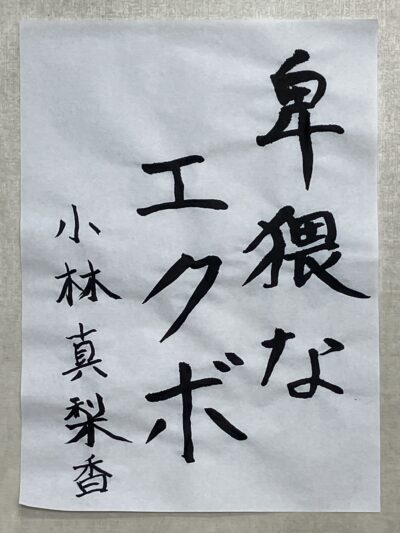 卑猥な
エクボ
小林真梨香